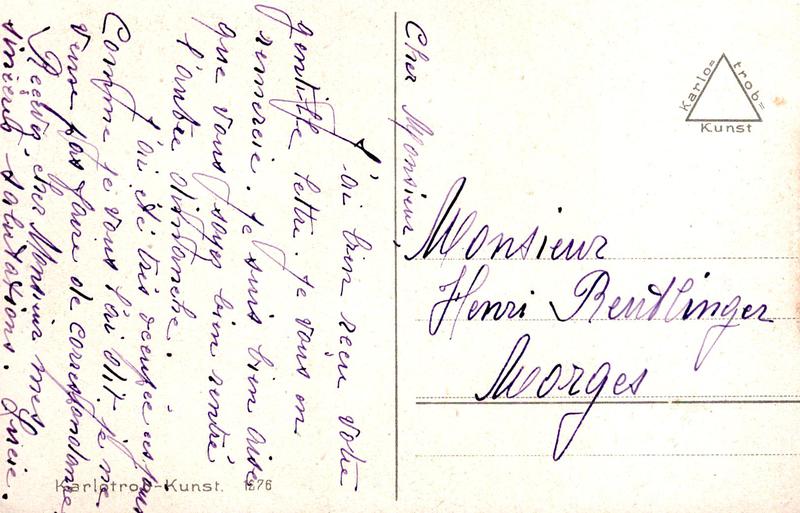 Cher Monsieur,
J'ai bien reçu votre
gentille lettre. Je vous en
remercie. Je suis bien aise
que vous soyez bien rentré
l'autre dimanche.
J'ai été très occupée ces jours
Comme je vous l'ai dit je ne
veux pas faire de correspondance
Recevez, cher Monsieur mes
sincères salutations. Lucie.
Karlo=
trob=
Kunst
Monsieur
Henri Reutlinger
Morges
Karlotrob-Kunst. 1276